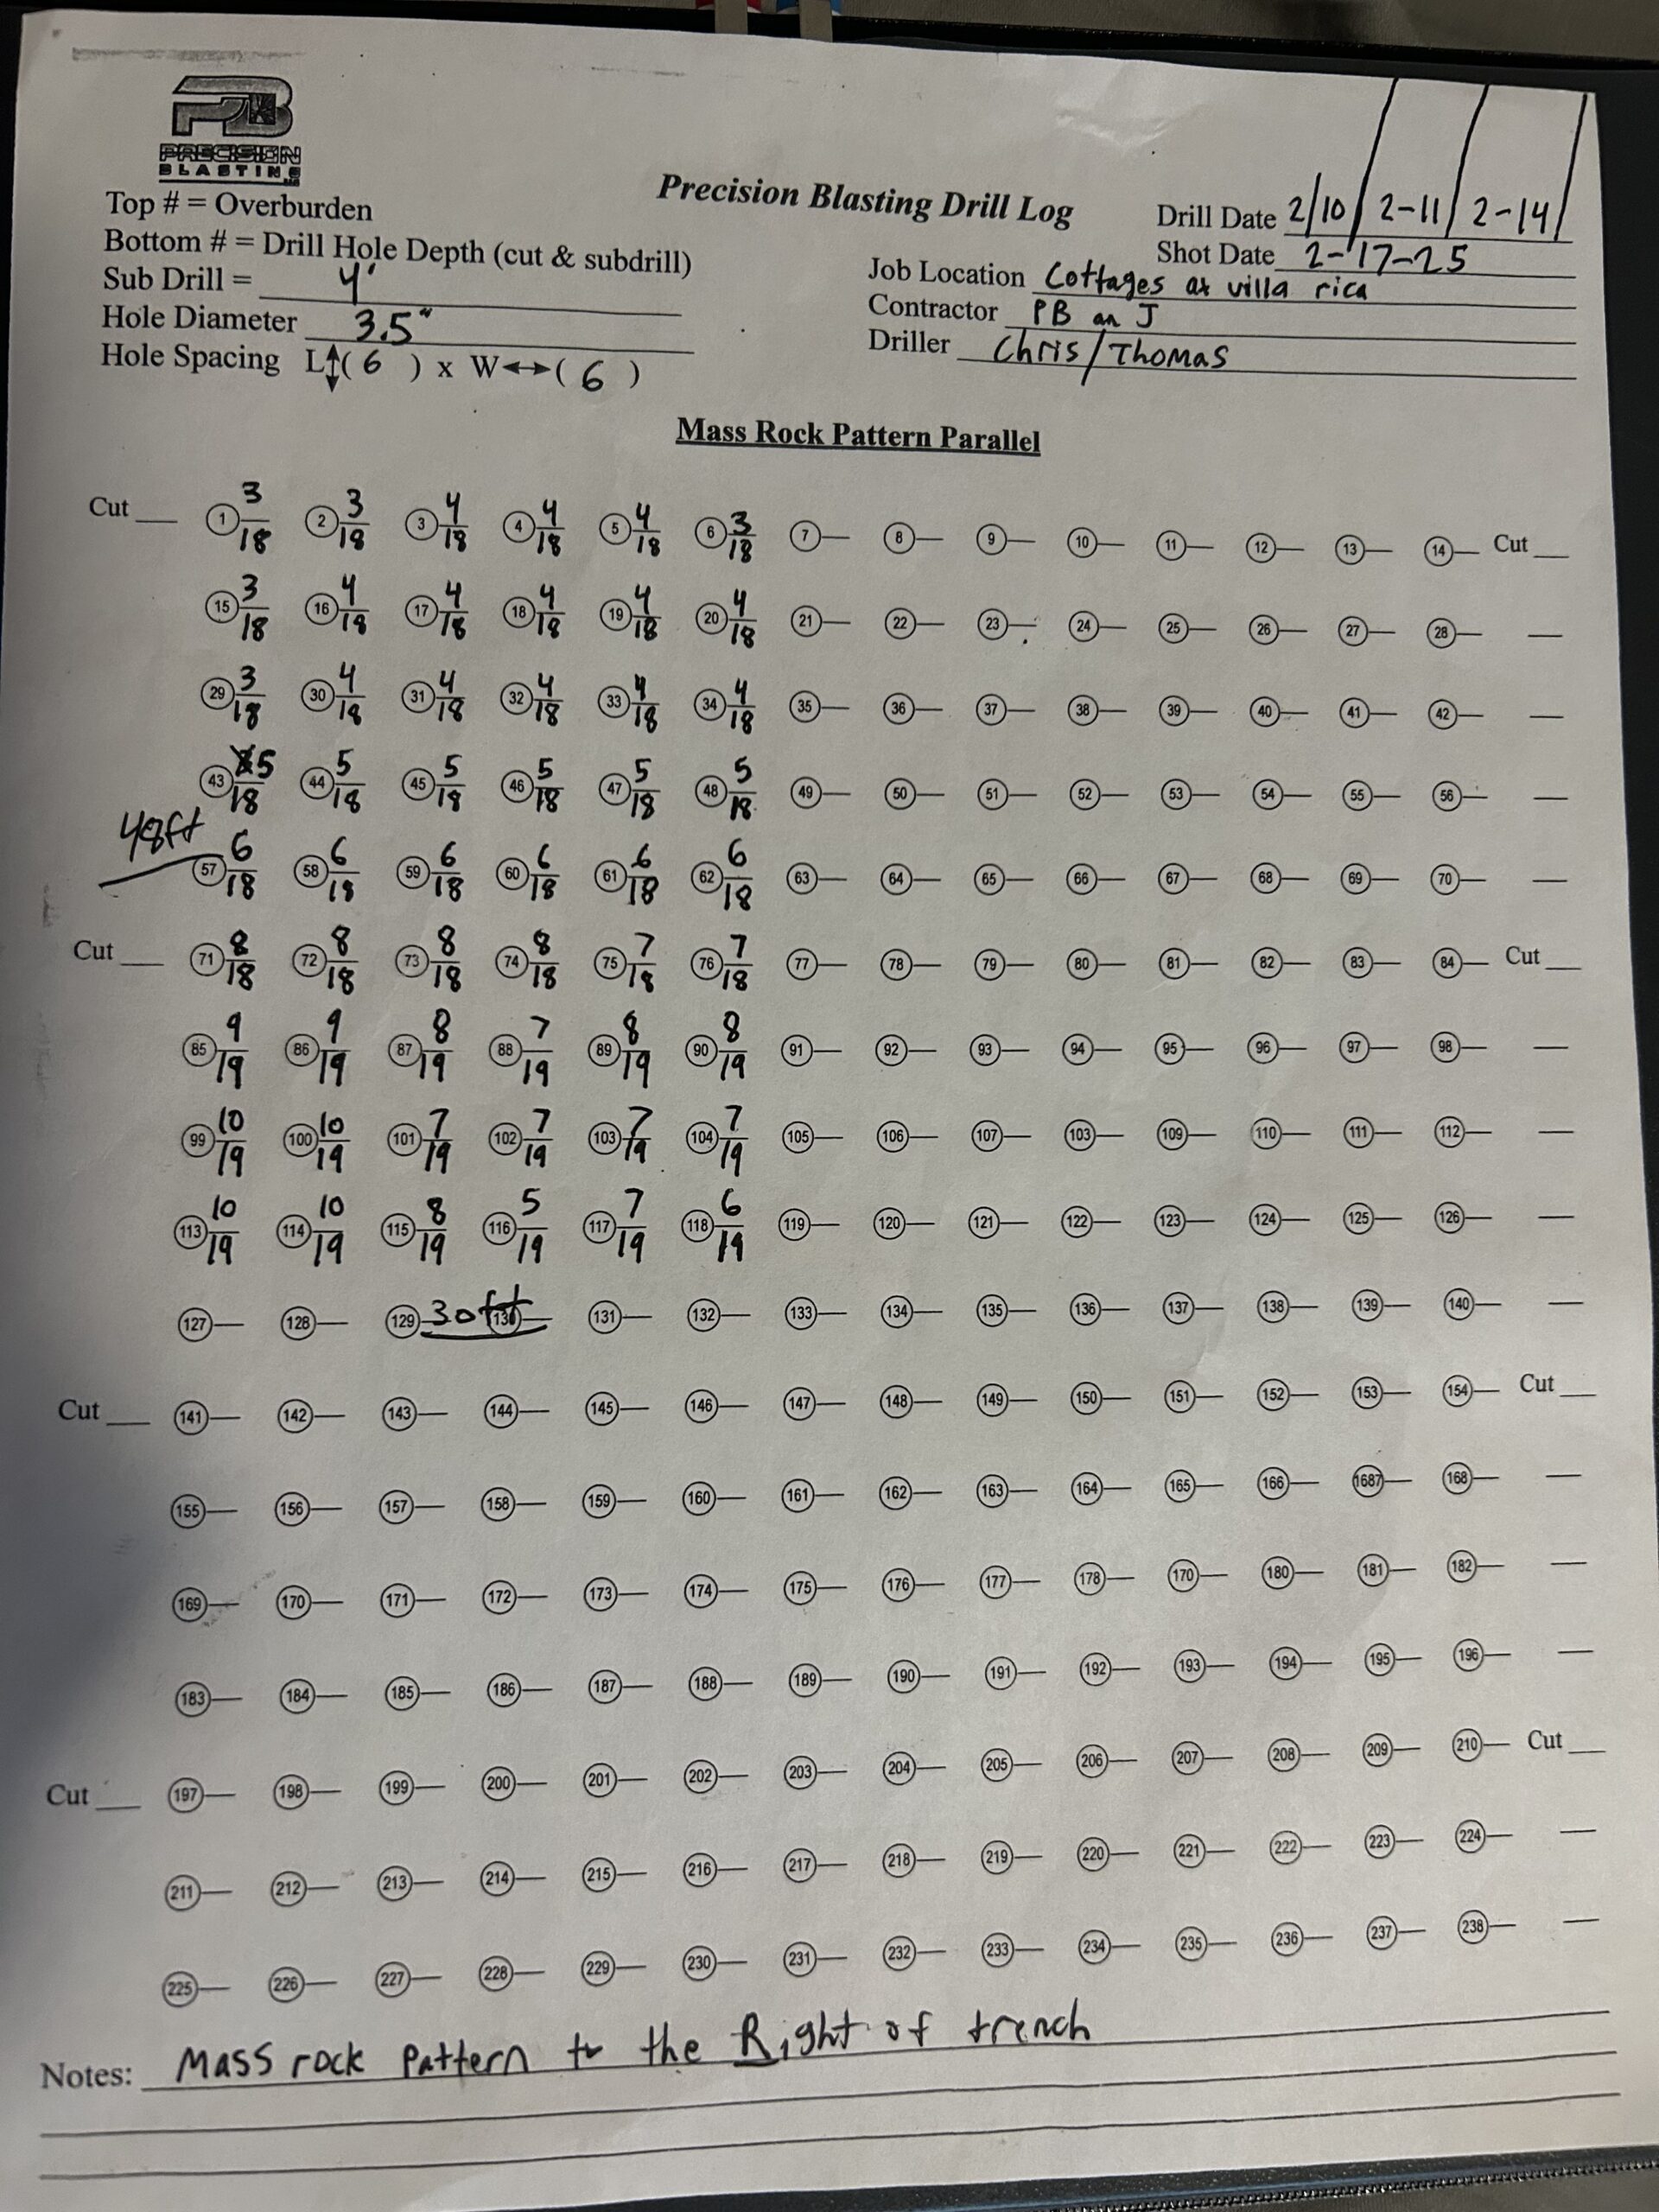 PB
PRECISION
BLASTING
Precision Blasting Drill Log
Top # = Overburden
Bottom # = Drill Hole Depth (cut & subdrill)
Sub Drill = 4'
Hole Diameter 3.5"
Hole Spacing L↕( 6 ) x W↔( 6 )
Drill Date 2/10 / 2-11 / 2-14 /
Shot Date 2-17-25
Job Location Cottages at villa rica
Contractor PB an J
Driller Chris/Thomas
Mass Rock Pattern Parallel
Cut ___ 1 3/18 2 3/18 3 4/18 4 4/18 5 4/18 6 3/18 7 — 8 — 9 — 10 — 11 — 12 — 13 — 14 — Cut ___
15 3/18 16 4/18 17 4/18 18 4/18 19 4/18 20 4/18 21 — 22 — 23 — 24 — 25 — 26 — 27 — 28 — —
29 3/18 30 4/18 31 4/18 32 4/18 33 4/18 34 4/18 35 — 36 — 37 — 38 — 39 — 40 — 41 — 42 — —
43 5/18 44 5/18 45 5/18 46 5/18 47 5/18 48 5/18 49 — 50 — 51 — 52 — 53 — 54 — 55 — 56 — —
48ft 57 6/18 58 6/18 59 6/18 60 6/18 61 6/18 62 6/18 63 — 64 — 65 — 66 — 67 — 68 — 69 — 70 — —
Cut ___ 71 8/18 72 8/18 73 8/18 74 8/18 75 7/18 76 7/18 77 — 78 — 79 — 80 — 81 — 82 — 83 — 84 — Cut ___
85 9/19 86 9/19 87 8/19 88 7/19 89 8/19 90 8/19 91 — 92 — 93 — 94 — 95 — 96 — 97 — 98 — —
99 10/19 100 10/19 101 7/19 102 7/19 103 7/19 104 7/19 105 — 106 — 107 — 103 — 109 — 110 — 111 — 112 — —
113 10/19 114 10/19 115 8/19 116 5/19 117 7/19 118 6/19 119 — 120 — 121 — 122 — 123 — 124 — 125 — 126 — —
127 — 128 — 129 30ft 130 — 131 — 132 — 133 — 134 — 135 — 136 — 137 — 138 — 139 — 140 — —
Cut ___ 141 — 142 — 143 — 144 — 145 — 146 — 147 — 148 — 149 — 150 — 151 — 152 — 153 — 154 — Cut ___
155 — 156 — 157 — 158 — 159 — 160 — 161 — 162 — 163 — 164 — 165 — 166 — 1687 — 168 — —
169 — 170 — 171 — 172 — 173 — 174 — 175 — 176 — 177 — 178 — 170 — 180 — 181 — 182 — —
183 — 184 — 185 — 186 — 187 — 188 — 189 — 190 — 191 — 192 — 193 — 194 — 195 — 196 — —
Cut ___ 197 — 198 — 199 — 200 — 201 — 202 — 203 — 204 — 205 — 206 — 207 — 208 — 209 — 210 — Cut ___
211 — 212 — 213 — 214 — 215 — 216 — 217 — 218 — 219 — 220 — 221 — 222 — 223 — 224 — —
225 — 226 — 227 — 228 — 229 — 230 — 231 — 232 — 233 — 234 — 235 — 236 — 237 — 238 — —
Notes: Mass rock pattern to the Right of trench